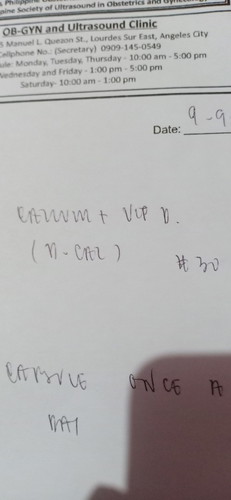 pine Society of Ultrasound in Obstetrics and Gynecology
OB-GYN and Ultrasound Clinic
Manuel L. Quezon St., Lourdes Sur East, Angeles City
Cellphone No.: (Secretary) 0909-145-0549
ule: Monday, Tuesday, Thursday - 10:00 am - 5:00 pm
Wednesday and Friday - 1:00 pm - 5:00 pm
Saturday- 10:00 am - 1:00 pm
Date: 9-9
CALCIUM + VIT D.
(N-CAL) #30
CAPSULE ONCE A
DAY